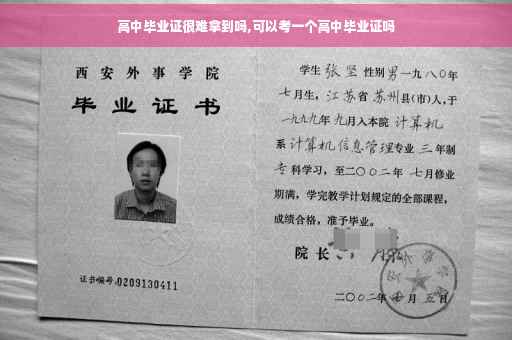 高中毕业证很难拿到吗,可以考一个高中毕业证吗
西安外事学院
毕业证书
证书编号:0209130411
学生 张坚 性别 男 一九八〇年
七月生, 江苏省 苏州县(市)人,于
一九九九年 九月入本院 计算机
系 计算机信息管理专业 三 年制
专 科学习, 至二〇〇二年 七月修业
期满, 学完教学计划规定的全部课程,
成绩合格, 准予毕业。
院长
二〇〇二年 月 五日